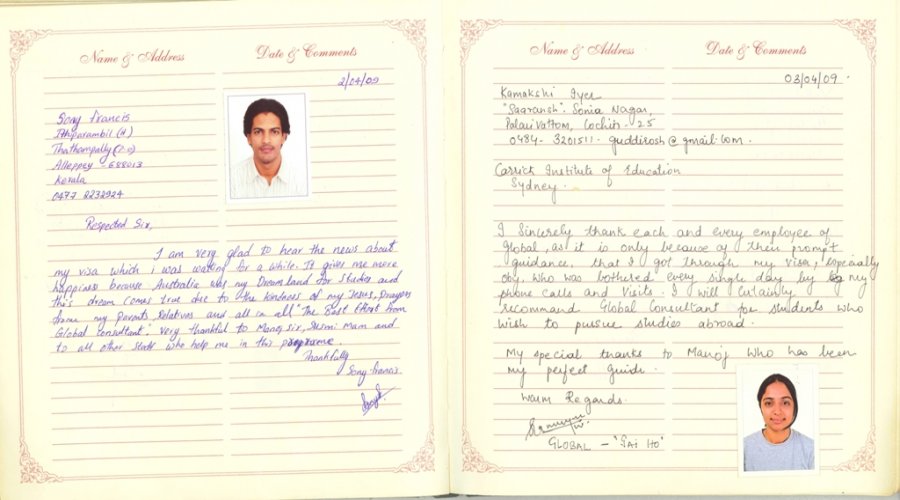 Name & Address
Date & Comments
2/04/09
Sony Francis
Ithiparambil (H)
Thathampally (P.O)
Alleppey - 688013
Kerala
0477 2232924
Respected Sir,
I am very glad to hear the news about
my visa which i was waiting for a while. It gives me more
happiness because Australia was my Dreamland for Studies and
this dream comes true due to the kindness of my Jesus, Prayers
from my Parents, Relatives and all in all "The Best Effort from
Global consultant". Very thankful to Manoj sir, Mam and
to all other staff who help me in this programe.
Thankfully
Sony Francis
Name & Address
Date & Comments
03/04/09.
Kamakshi Iyer
"Saaransh". Sonia Nagar,
Palarivattom, Cochin - 25
0484 - 3201511 - guddirosh@gmail.com.
Carrick Institute of Education
Sydney.
I Sincerely thank each and every employee of
Global, as it is only because of their prompt
guidance, that I got through my visa, especially
who was bothered every single day by my
phone calls and visits. I will Certainly
recommand Global Consultant for students who
wish to pursue studies abroad.
My special thanks to Manoj who has been
my perfect guide.
Warm Regards.
GLOBAL - "JAI HO"